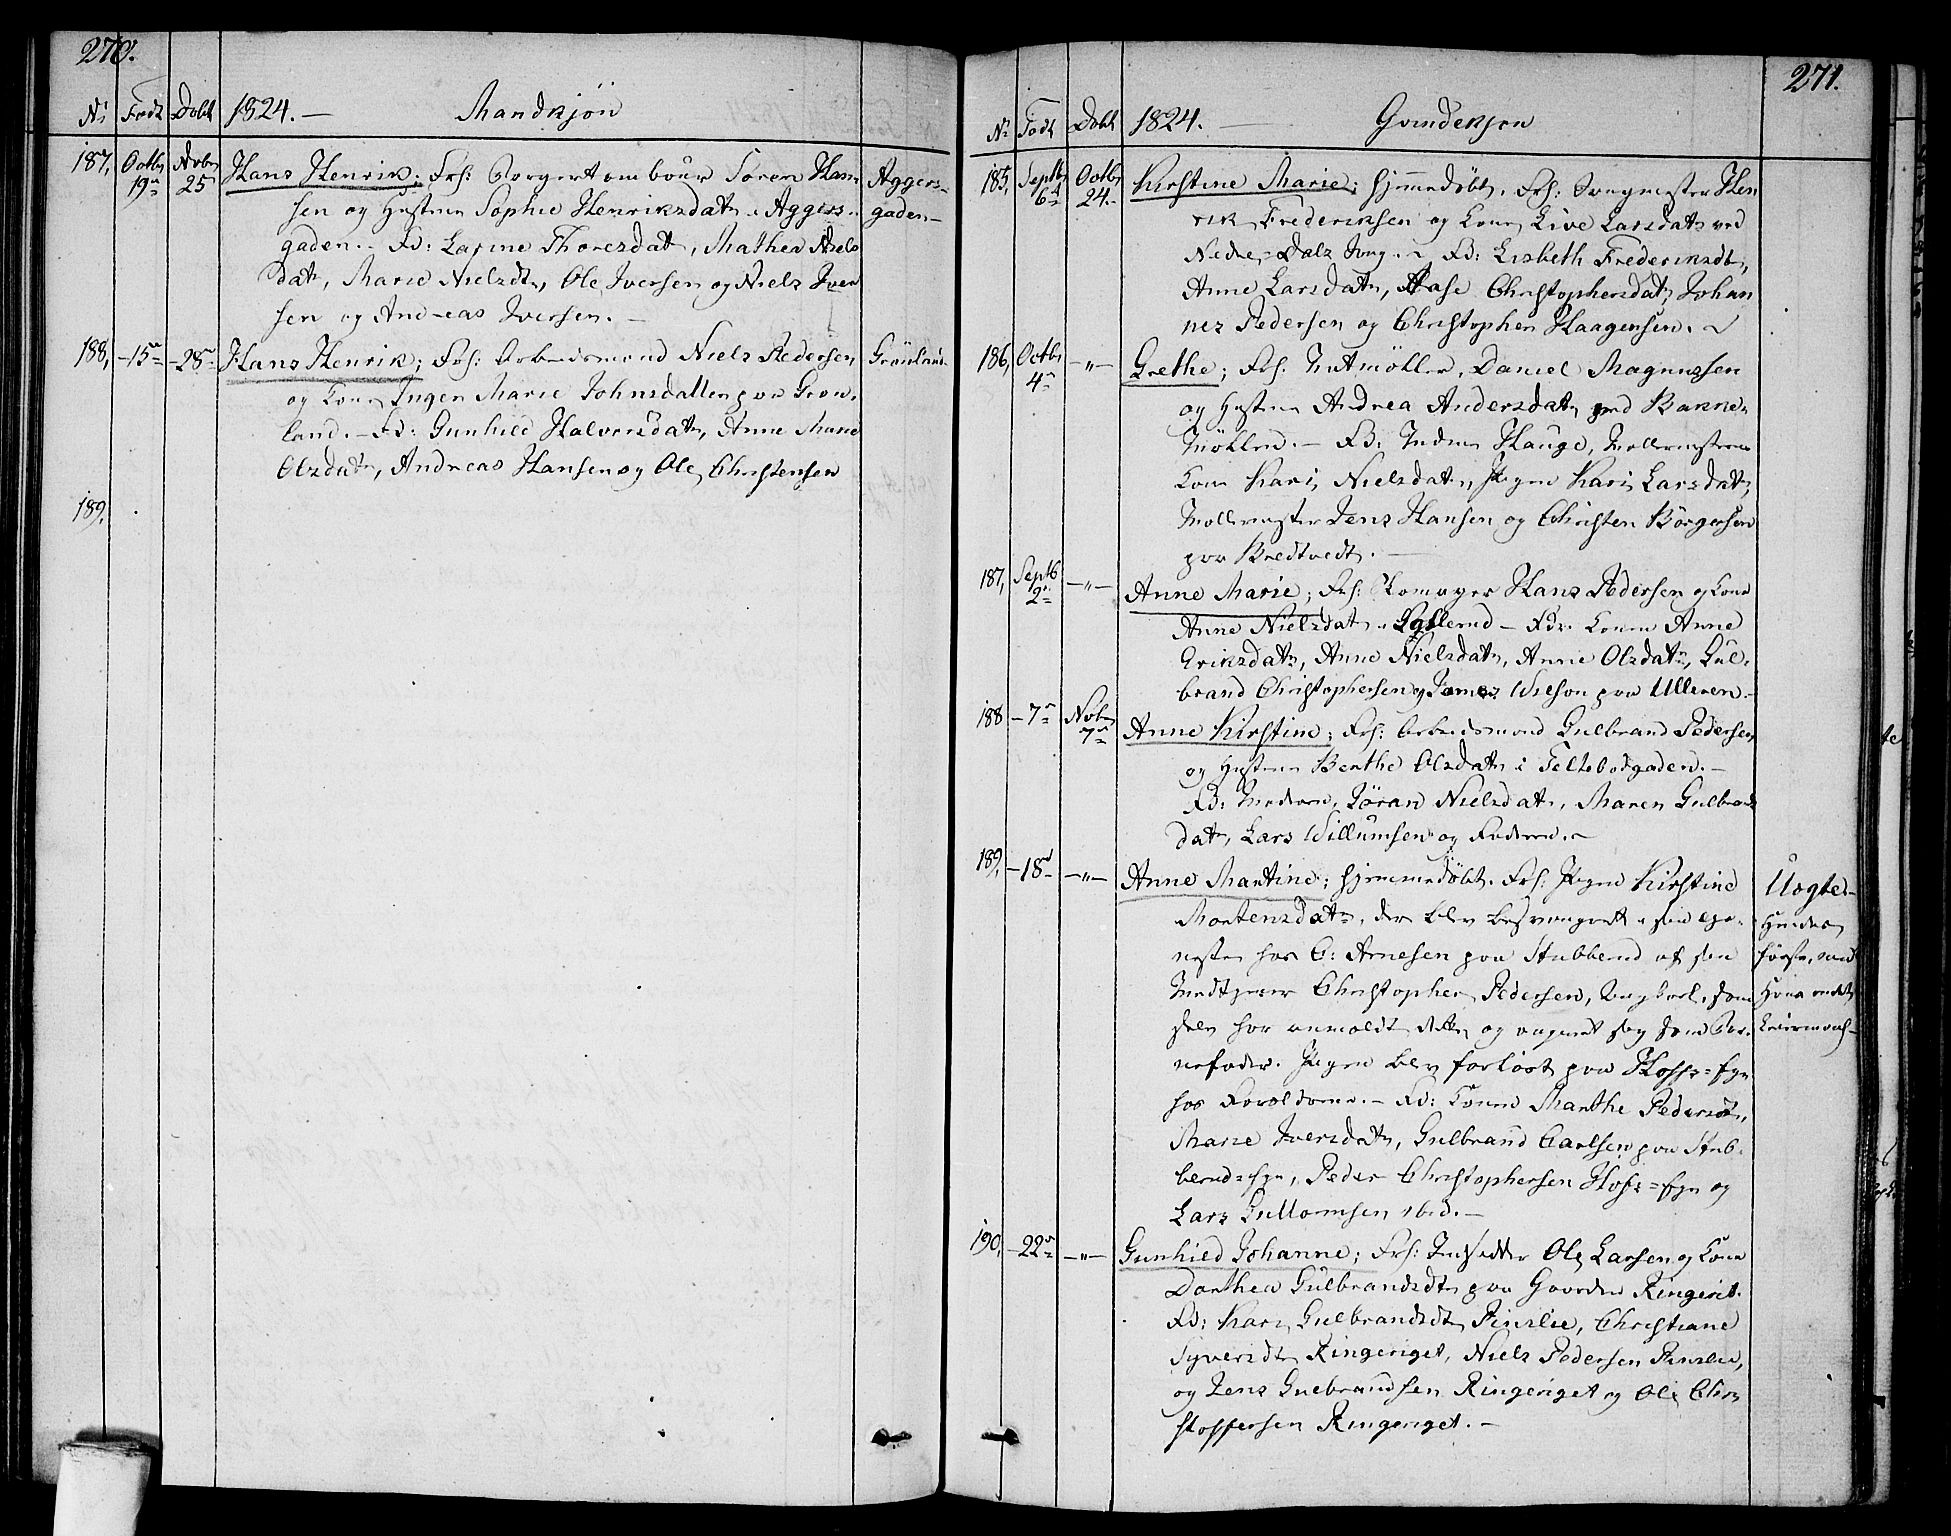 270.
No Födt Döbt 1824. — Mandkjön
187, Octbr 19de Novbr 25 Hans Henrik; Frs: Borgert ombour Sören Han
sen og Hustrue Sophie Henriksdatr i Aggers-
gaden.. Fd: Larine Thoresdatr, Mathea Niels
datr, Marie Nielsdtr, Ole Iversen og Niels Iver
sen og Andreas Iversen. —
Aggers-
gaden—
188, —15de —28de Hans Henrik; Frs: Arbeidsmand Niels Pedersen,
og Kone Inger Marie Johnsdatter paa Grön-
land. — Fd: Gunhild Halvorsdatr, Anne Marie
Olsdatr, Andreas Hansen og Ole Christensen
Grönland.
189,
271.
No Födt Döbt 1824. — Qvindekjön
185, Septbr 6te Octbr 24.— Kirstine Marie; hjemmedöbt. Frs: Hen
rik Frederiksen og Kone Live Larsdatr ved
Nedre=Dals . Fd: Lisbeth Frederiksdtr,
Anne Larsdatr, Aase Christophersdatr, Johan
nes Pedersen og Christopher Haagensen.
186, Octbr 4de —"— Grethe; Frs: Daniel Magnussen
og Hustrue Andrea Andersdatr ved Banne-
Möllen. — Fd: Hauge, Mollermesterens
Kone Kari Nielsdatr, Pigen Kari Larsdatr,
Mollermester Jens Hansen og Christen Börgersen
paa Bredtvedt. —
187, Septbr 2den —"— Anne Marie; Frs: Skomager Hans Pedersen og Kone
Anne Nielsdatr i — Fdr: Konen Anne
Eriksdatr, Anne Nielsdatr, Anne Olsdatr, Gul-
brand Christophersen og James Wilson paa Ulleren.—
188 —7de Novbr 7de Anne Kirstine; Frs: Arbeidsmand Gulbrand Pedersen,
og Hustrue Berthe Olsdatr i Feltebodgaden. —
Fd: Moderen, Jöran Nielsdatr, Maren Gulbrands
datr, Lars Willumsen og Faderen. —
189, —18de —"— Anne Martine; hjemmedöbt. Frs: Pigen Kirstine
Mortensdatr, der blev besvangret i sin tje-
neste hos C: Arnesen paa Stubberud af sin
Medtjener Christopher Pedersen, Ungkarl, som
selv har anmeldt dette og angivet sig som Bar-
nefader. Pigen blev forlöst paa Hoffs=Eje
hos Forældrene. — Fd: Konen Marthe Pedersdtr,
Marie Iversdatr, Gulbrand Carlsen paa Stub-
beruds=Eje, Peder Christophersen Hofs=Eje og
Lars Guttormsen ibid. —
Uægte—
Hendes
förste, med
Hans andet
Leiermaal—
190, —22de —"— Gunhild Johanne; Frs: Indsidder Ole Larsen og Kone
Dorthea Gulbrandsdtr paa Gaarden Ringerit.
Fd: Kari Gulbrandsdtr , Christiane
Syversdtr Ringeriget, Niels Pedersen ,
og Jens Gulbrandsen Ringeriget og Ole Chri
stoffersen Ringeriget. —